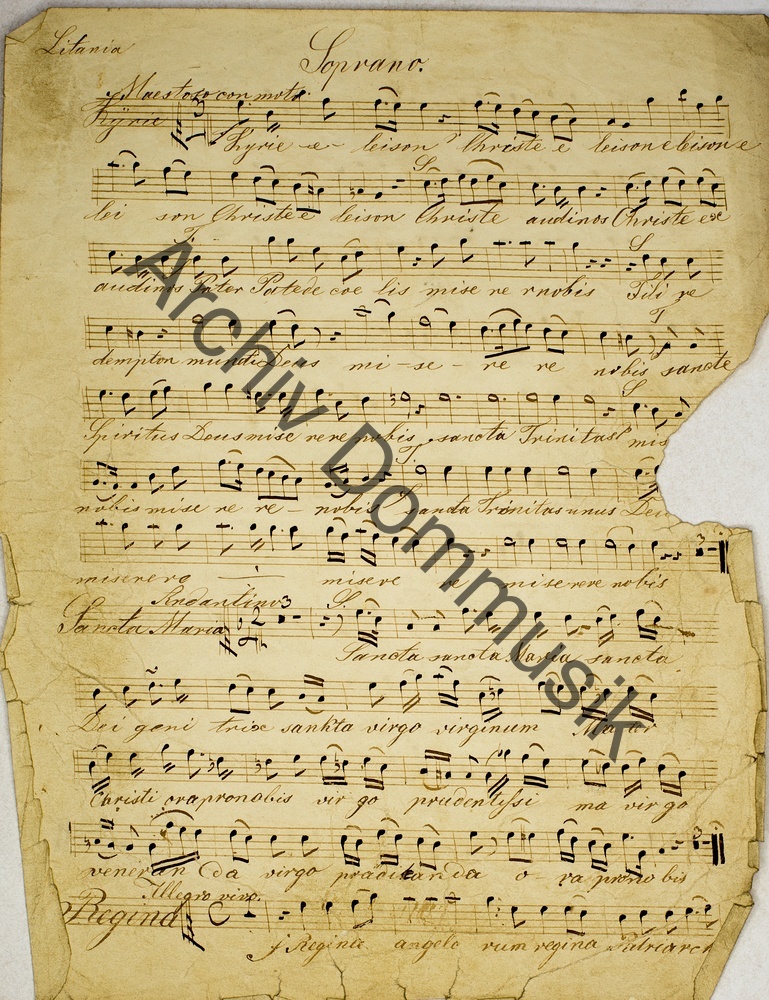 Litania
Soprano.
Maestoso con moto
Kÿrie
Kyrie e- leison Christe e leison eleison e
lei son Christe e leison Christe audinos Christe ex
audinos Pater Pater de coe lis mise re re nobis Fili re
demptor mundi Deus mi-se-re re nobis sancte
Spiritus Deus mise rere nobis sancta Trinitas mis
nobis mise re re- nobis sancta Trinitas unus Deus
miserere misere re miserere nobis
Andantino
Sancta Maria
Sancta sancta Maria sancta
Dei geni trix sankta virgo virginum Mater
Christi ora pro nobis vir go prudentissi ma vir go
veneran da virgo prädikanda o-ra pro no bis
Allegro vivo.
Regina
f Regina angelo rum regina Patriarch
Archiv Dommusik